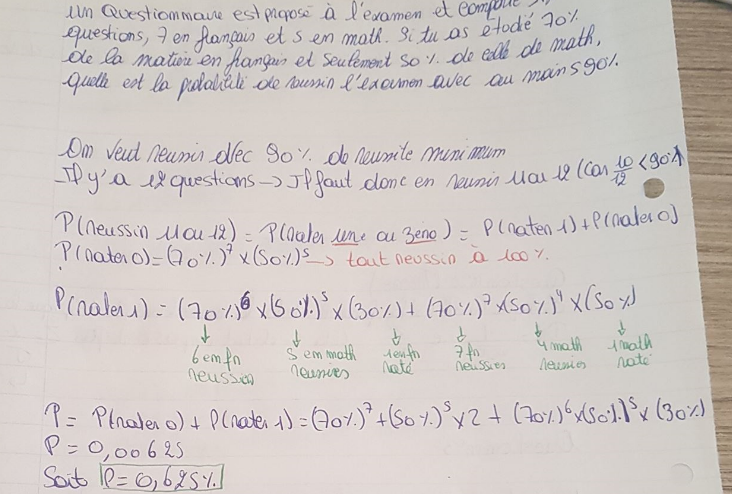 un Questionnaire est proposé à l'examen et comporte
questions, 7 en français et 5 en math. Si tu as étudié 70%
de la matière en français et seulement 50% de celle de math,
quelle est la probabilité de réussir l'examen avec au moins 90%.
On veut réussir avec 90% de réussite minimum
Il y'a 12 questions → Il faut donc en réussir 11 ou 12 (Car 10/12 < 90%)
P(réussir 11 ou 12) = P(rater une ou zéro) = P(rater 1) + P(rater 0)
P(rater 0) = (70%)^7 × (50%)^5 → tout réussir à 100%.
P(rater 1) = (70%)^6 × (50%)^5 × (30%) + (70%)^7 × (50%)^4 × (50%)
↓ ↓ ↓ ↓ ↓ ↓
6 en fr 5 en math 1 en fr 7 fr 4 math 1 math
réussies réussies raté réussies réussies raté
P = P(rater 0) + P(rater 1) = (70%)^7 + (50%)^5 × 2 + (70%)^6 × (50%)^5 × (30%)
P = 0,00625
Soit P = 0,625%